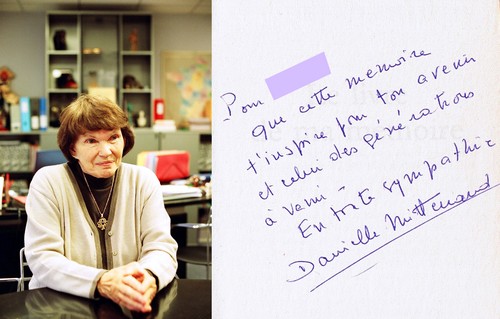 Pour
que cette mémoire
t'inspire pour ton avenir
et celui des générations
à venir -
En toute sympathie
Danielle Mitterrand